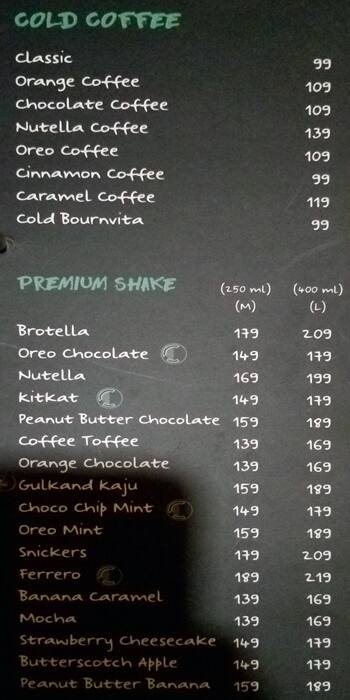 COLD COFFEE
Classic 99
Orange Coffee 109
Chocolate Coffee 109
Nutella Coffee 139
Oreo Coffee 109
Cinnamon Coffee 99
Caramel Coffee 119
Cold Bournvita 99
PREMIUM SHAKE (250 ml) (400 ml)
(M) (L)
Brotella 179 209
Oreo Chocolate 149 179
Nutella 169 199
Kitkat 149 179
Peanut Butter Chocolate 159 189
Coffee Toffee 139 169
Orange Chocolate 139 169
Gulkand Kaju 159 189
Choco Chip Mint 149 179
Oreo Mint 159 189
Snickers 179 209
Ferrero 189 219
Banana Caramel 139 169
Mocha 139 169
Strawberry Cheesecake 149 179
Butterscotch Apple 149 179
Peanut Butter Banana 159 189